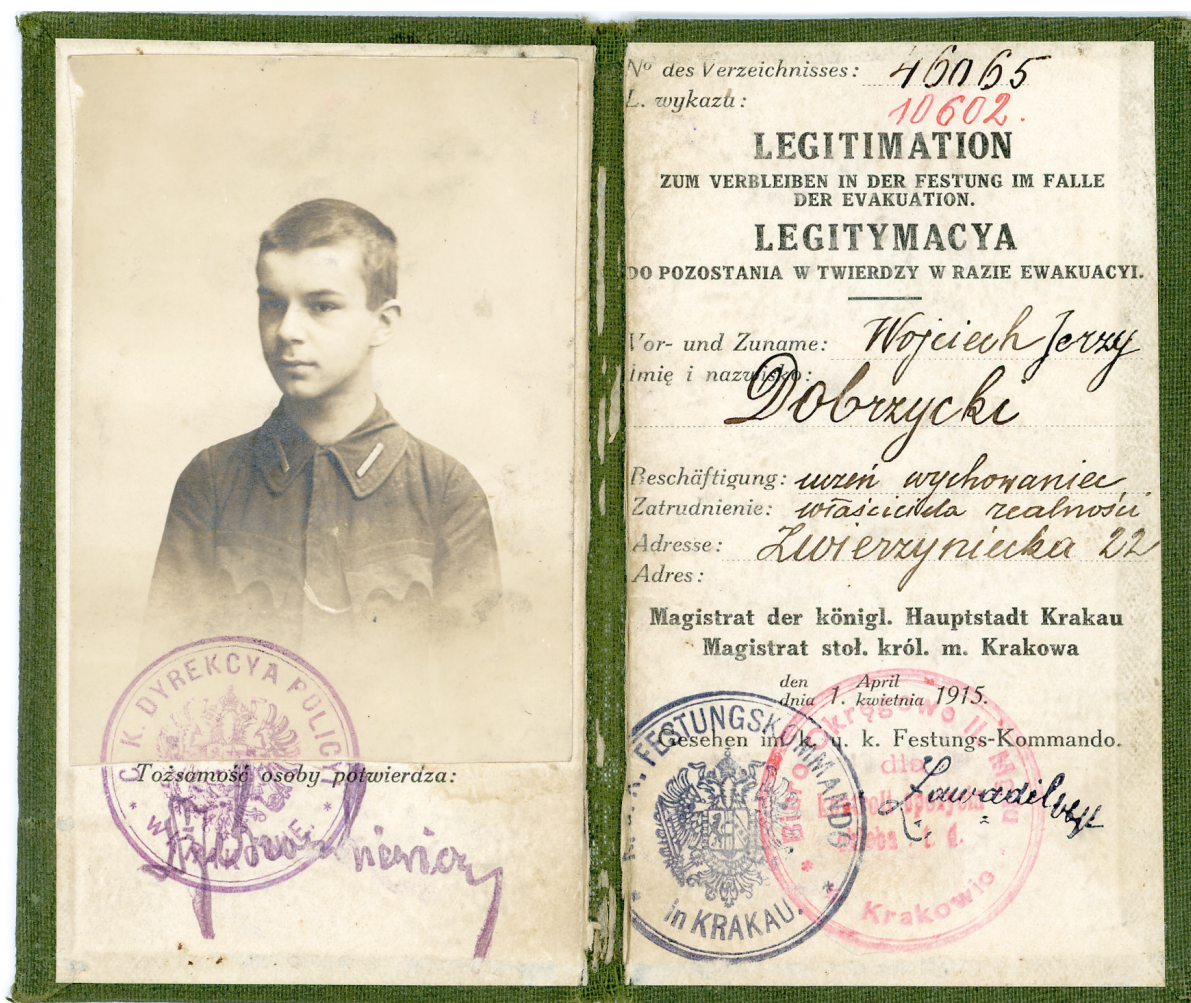 C. K. DYREKCYA POLICYI
W KRAKOWIE
Tożsamość osoby potwierdza:
No des Verzeichnisses: 46065
L. wykazu: 10602.
LEGITIMATION
ZUM VERBLEIBEN IN DER FESTUNG IM FALLE
DER EVAKUATION.
LEGITYMACYA
DO POZOSTANIA W TWIERDZY W RAZIE EWAKUACYI.
Vor- und Zuname: Wojciech Jerzy
Imię i nazwisko:
Dobrzycki
Beschäftigung: uczeń wychowaniec
Zatrudnienie: właściciela realności
Adresse: Zwierzyniecka 22
Adres:
Magistrat der königl. Hauptstadt Krakau
Magistrat stoł. król. m. Krakowa
den April
dnia 1. kwietnia 1915.
Gesehen im k. u. k. Festungs-Kommando.
K. u. K. FESTUNGSKOMMANDO
in KRAKAU.
Biuro Okręgowe II. Mag.
dla
Kontroli spożycia
chleba i t. d.
Krakowie